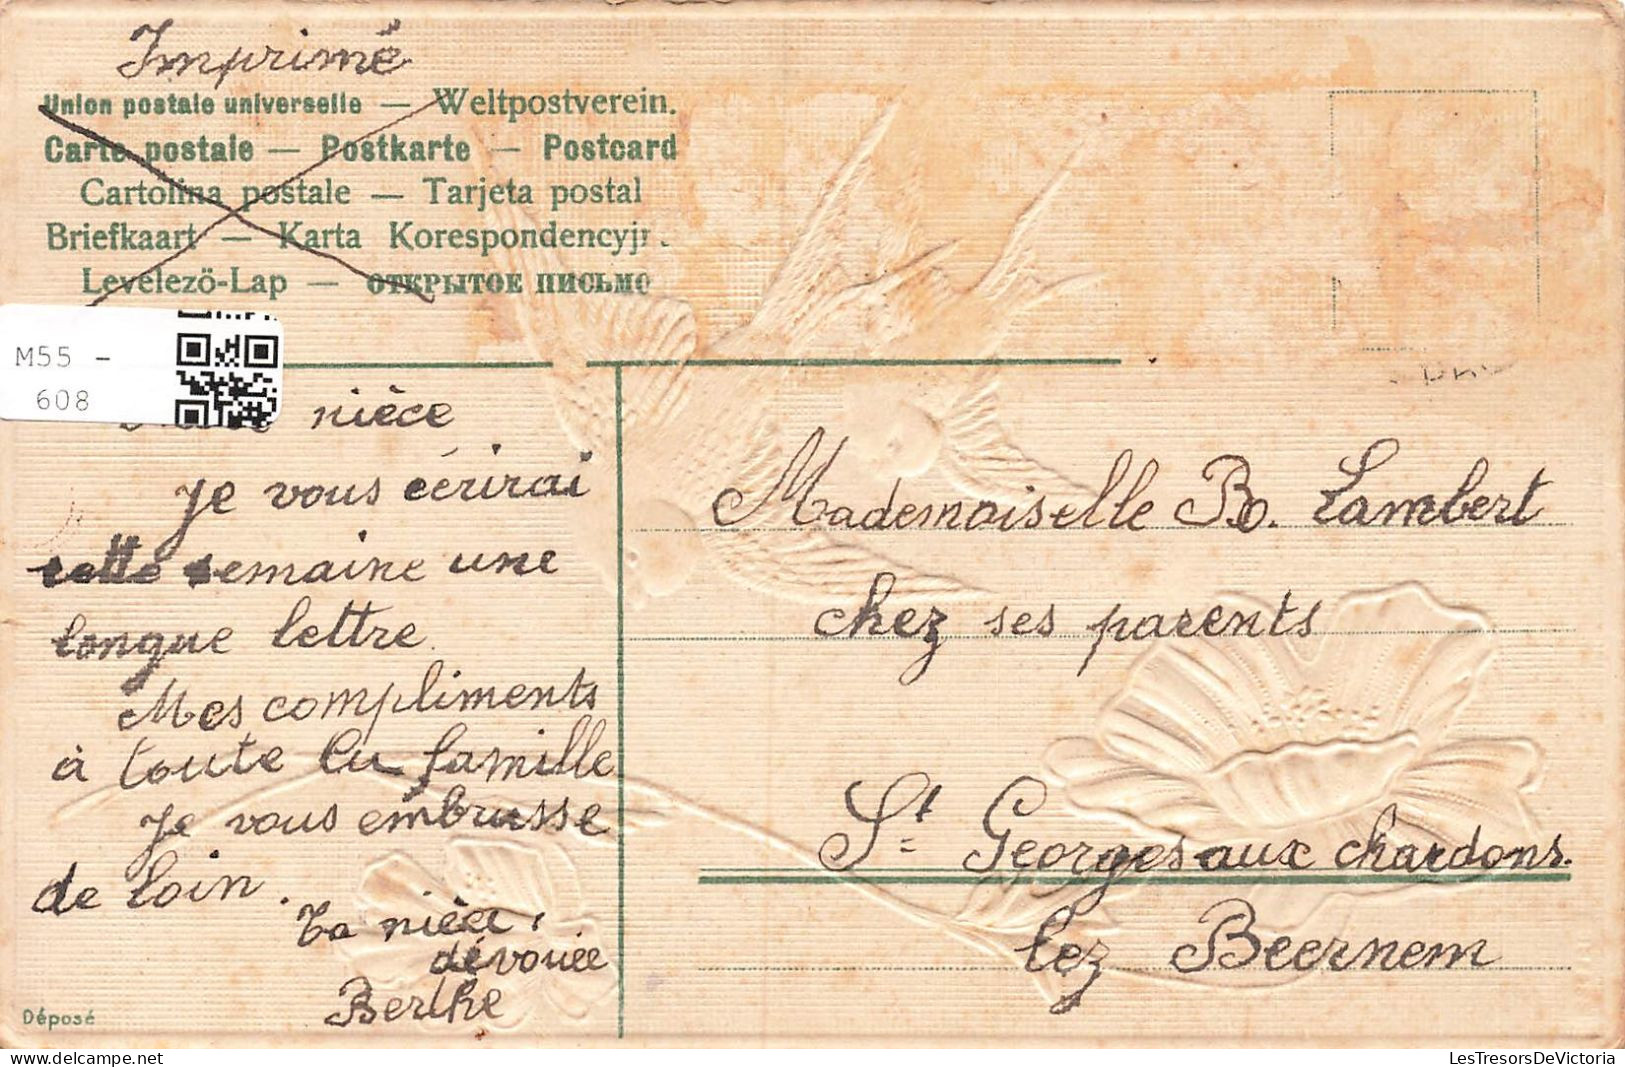 Imprimé
Union postale universelle — Weltpostverein.
Carte postale — Postkarte — Postcard
Cartolina postale — Tarjeta postal
Briefkaart — Karta Korespondencyjn
Levelező-Lap — ОТКРЫТОЕ ПИСЬМО
M55 -
608
nièce
Je vous écrirai
cette semaine une
longue lettre.
Mes compliments
à toute la famille
Je vous embrasse
de loin.
Ta nièce,
dévouée
Berthe
Déposé
Mademoiselle B. Lambert
chez ses parents
St Georges aux chardons.
lez Beernem
LesTresorsDeVictoria